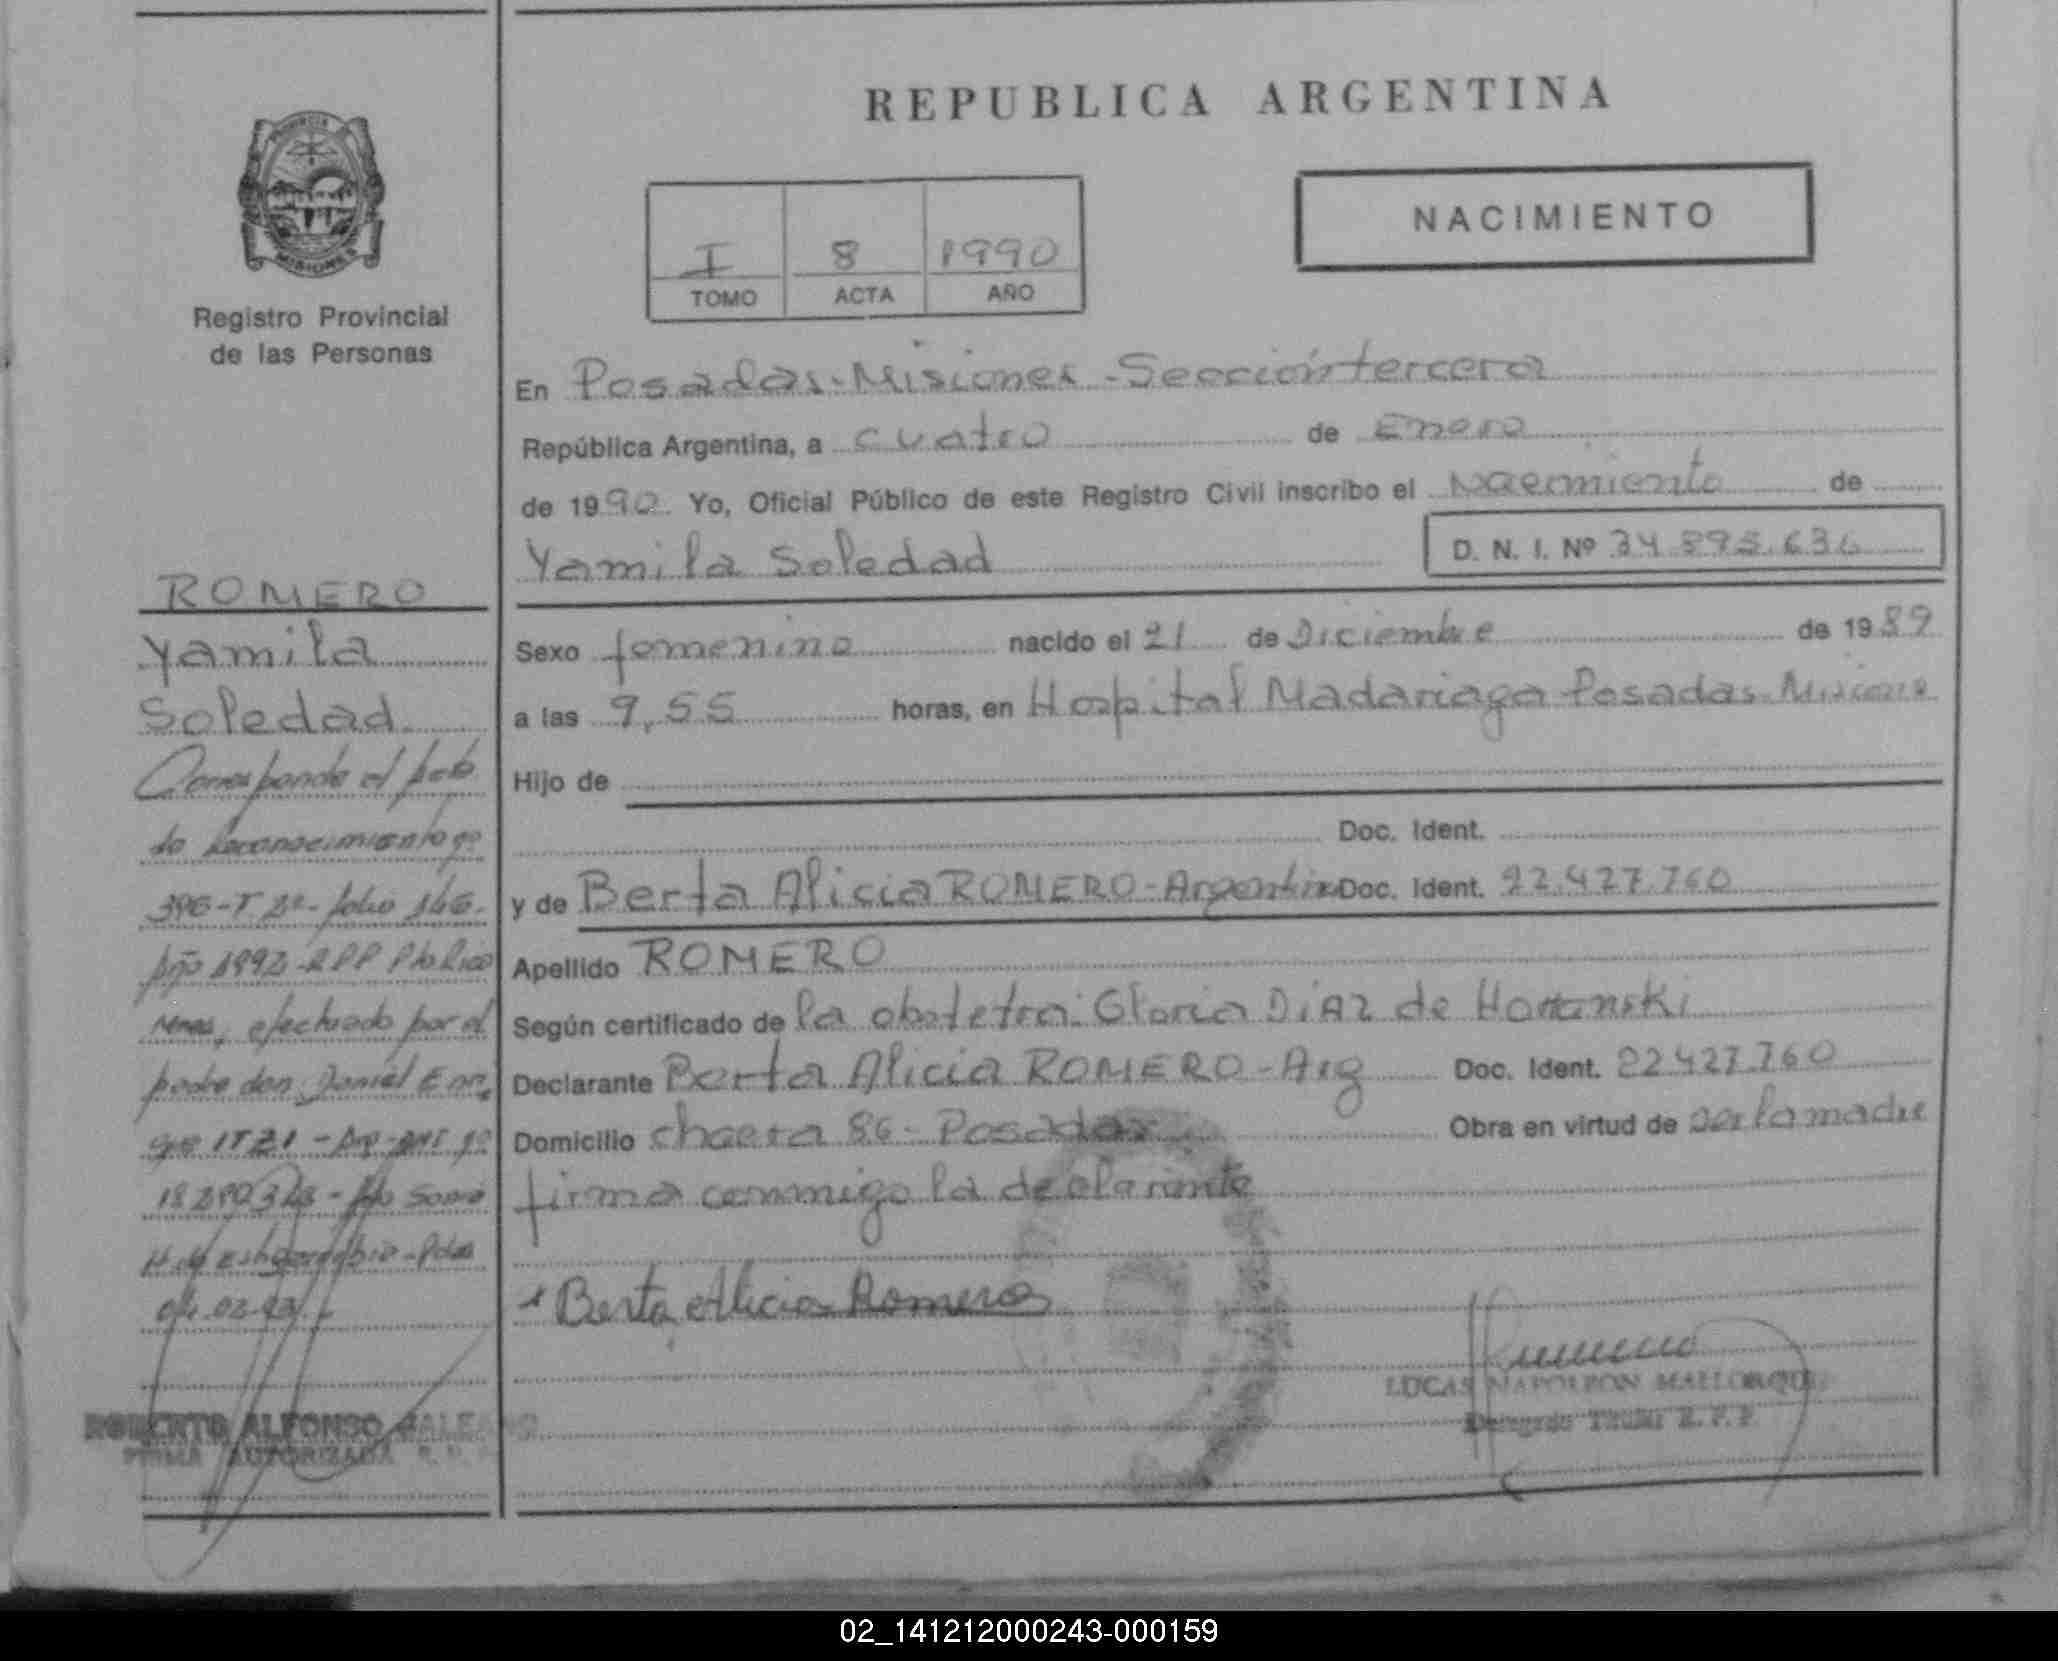 REPUBLICA ARGENTINA
PROVINCIA
MISIONES
Registro Provincial
de las Personas
NACIMIENTO
I 8 1990
TOMO ACTA AÑO
En Posadas - Misiones - Sección tercera
República Argentina, a cuatro de Enero
de 1990. Yo, Oficial Público de este Registro Civil inscribo el Nacimiento de
Yamila Soledad D. N. I. Nº 34.895.636
ROMERO
Yamila
Soledad
Corresponde al Acto
de Reconocimiento nº
396-T 2º- folio 146-
Año 1992-RPP
efectuado por el
padre don Daniel Enri
que
04.02.93
ROBERTO ALFONSO GALEANO
FIRMA AUTORIZADA R. P.
Sexo femenino nacido el 21 de Diciembre de 1989
a las 9,55 horas, en Hospital Madariaga Posadas - Misiones
Hijo de
Doc. Ident.
y de Berta Alicia ROMERO - Argentina Doc. Ident. 22.427.760
Apellido ROMERO
Según certificado de la obstetra: Gloria DiAZ de
Declarante Berta Alicia ROMERO - Arg Doc. Ident. 22.427.760
Domicilio chacra 86 - Posadas Obra en virtud de ser la madre
firma conmigo la declarante
x Berta Alicia Romero
LUCAS NAPOLEON MALLORQUIN
Delegado Titular R. P. P.
02_141212000243-000159